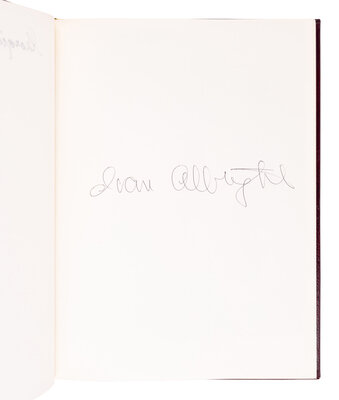 Ivan Albright